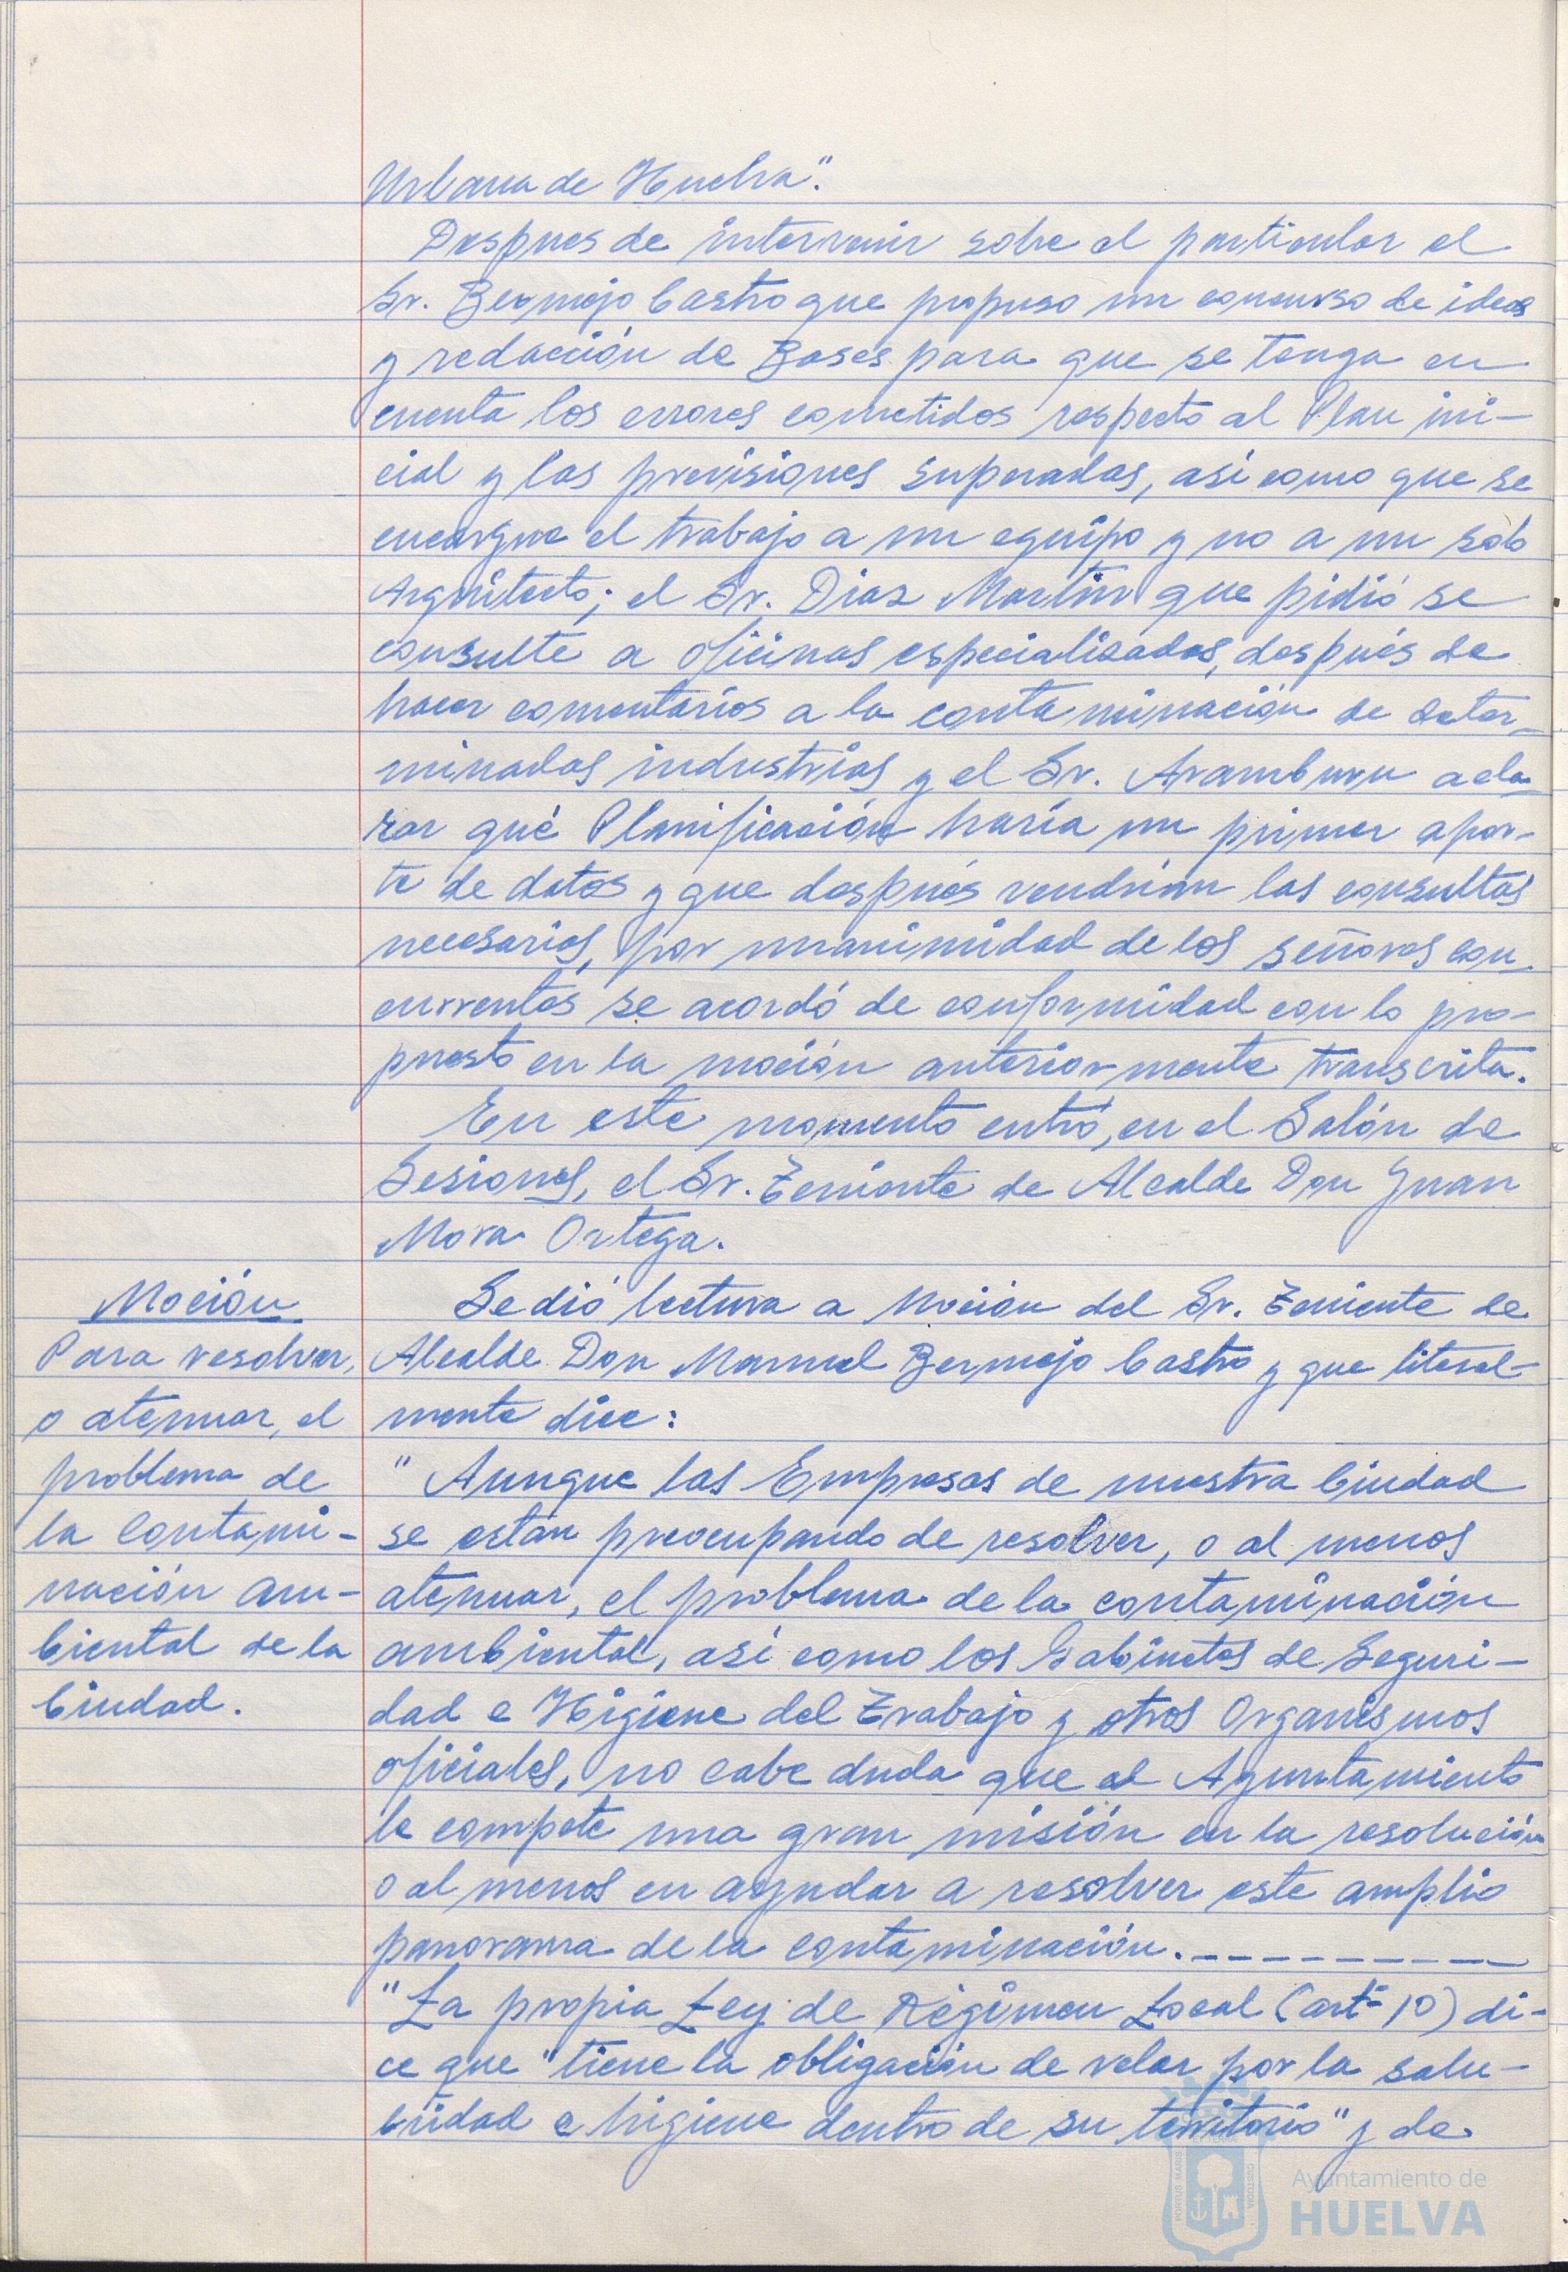 Urbana de Huelva".
Despues de intervenir sobre el particular el
Sr. Bermejo Castro que propuso un concurso de ideas
y redacción de Bases para que se tenga en
cuenta los errores cometidos respecto al Plan ini-
cial y las previsiones superadas, así como que se
encargue el trabajo a un equipo y no a un solo
Arquitecto; el Sr. Diaz Martin que pidió se
consulte a oficinas especializadas, después de
hacer comentarios a la contaminación de deter-
minadas industrias y el Sr. Aramburu acla-
rar qué Planificación haría un primer apor-
te de datos y que después vendrian las consultas
necesarias, por unanimidad de los señores con-
currentes se acordó de conformidad con lo pro-
puesto en la moción anteriormente transcrita.
En este momento entró, en el Salón de
Sesiones, el Sr. Teniente de Alcalde Don Juan
Mora Ortega.
Moción
Para resolver,
o atenuar, el
problema de
la Contami-
nación am-
biental de la
Ciudad.
Se dió lectura a Moción del Sr. Teniente de
Alcalde Don Manuel Bermejo Castro y que literal-
mente dice:
" Aunque las Empresas de nuestra Ciudad
se están preocupando de resolver, o al menos
atenuar, el problema de la contaminación
ambiental, así como los Gabinetes de Seguri-
dad e Higiene del Trabajo y otros Organismos
oficiales, no cabe duda que al Ayuntamiento
le compete una gran misión en la resolución
o al menos en ayudar a resolver este amplio
panorama de la contaminación.----------
"La propia Ley de Régimen Local (artº 10) di-
ce que "tiene la obligación de velar por la salu-
bridad e higiene dentro de su territorio" y de
PORTUS MARIS
CUSTODIA
Ayuntamiento de
HUELVA